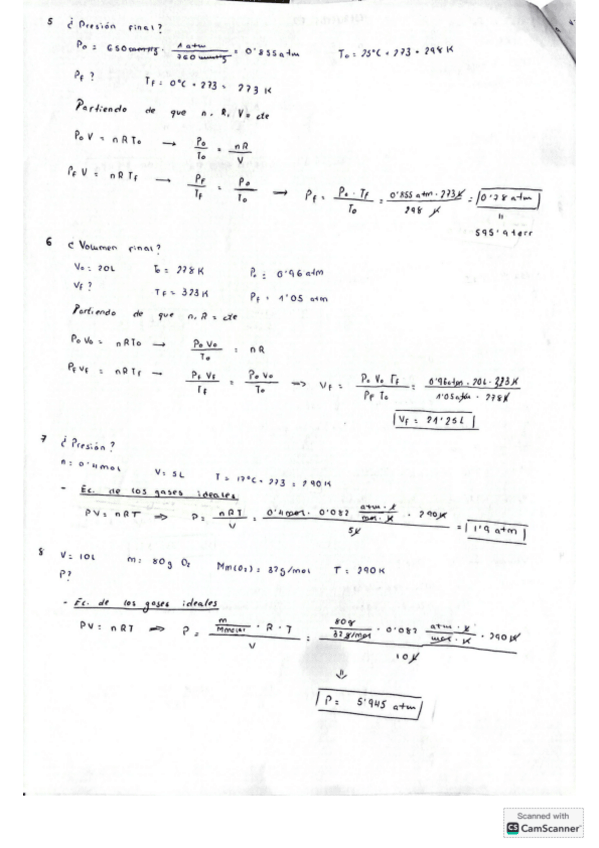 5 ¿Presión final?
P₀ = 650 mmHg · 1 atm / 760 mmHg = 0'855 atm T₀ = 25°C + 273 = 298 K
Pf ? Tf = 0°C + 273 = 273 K
Partiendo de que n, R, V = cte
P₀ V = nRT₀ → P₀/T₀ = nR/V
Pf V = nRTf → Pf/Tf = P₀/T₀ → Pf = P₀ · Tf / T₀ = 0'855 atm · 273 K / 298 K = 0'78 atm
=
595'9 torr
6 ¿Volumen final?
V₀ = 20L T₀ = 278 K P₀ = 0'96 atm
Vf ? Tf = 323 K Pf = 1'05 atm
Partiendo de que n, R = cte
P₀ V₀ = nRT₀ → P₀ V₀ / T₀ = nR
Pf Vf = nRTf → Pf Vf / Tf = P₀ V₀ / T₀ ⇒ Vf = P₀ V₀ Tf / Pf T₀ = 0'96 atm · 20L · 323 K / 1'05 atm · 278 K
Vf = 21'25L
7 ¿Presión?
n = 0'4 mol V = 5L T = 17°C + 273 = 290 K
- Ec. de los gases ideales
PV = nRT ⇒ P = nRT / V = 0'4 mol · 0'082 atm · L / mol · K · 290 K / 5L = 1'9 atm
8 V = 10L m = 80g O₂ Mm(O₂) = 32g/mol T = 290 K
P?
- Ec. de los gases ideales
PV = nRT ⇒ P = m / Mm(O₂) · R · T / V = 80g / 32g/mol · 0'082 atm · L / mol · K · 290 K / 10L
⇓
P = 5'945 atm
Scanned with
CS CamScanner